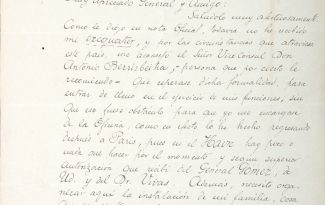 Muy apreciado General y Amigo:
Salúdolo muy afectuosamente.
Como le digo en nota oficial, todavía no he recibido
mi exequatur, y por las circunstancias que atraviesa
este país, me aconsejó el señor Vice Consul Don
Antonio Berrisbeitia, - persona que no dejaré de
recomiendo - que esperase dicha formalidad para
entrar de lleno en el ejercicio de mis funciones, sin
que eso fuese obstáculo para que yo me encargara
de la Oficina, como en efecto lo he hecho, regresando
después a París, pues en el Havre hay poco o
nada que hacer por el momento y según superior
autorización que recibí del General Gómez, de
Ud. y del Dr. Vivas. Además, necesito orga-
nizar aquí la instalación de mi familia, cosa